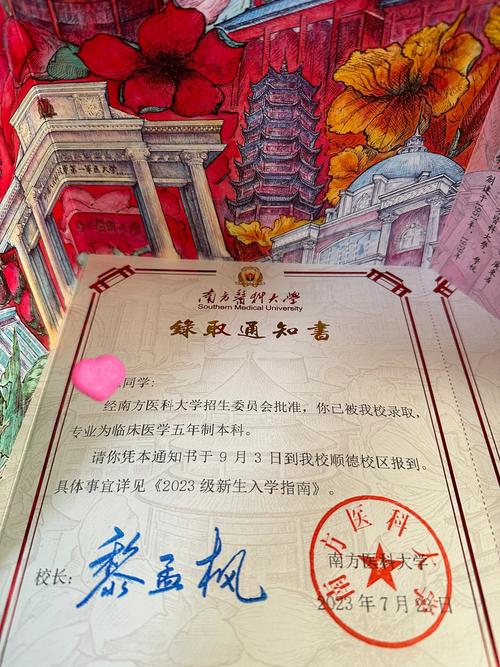 第一军医大学
南方医科大学
Southern Medical University
錄取通知書
同学:
经南方医科大学招生委员会批准,你已被我校录取,
专业为临床医学五年制本科。
请你凭本通知书于9月3日到我校顺德校区报到。
具体事宜详见《2023级新生入学指南》。
校长:
黎孟枫
南方医科大学
南方医科大学
2023年7月2 日